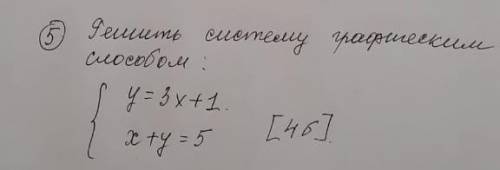 5 Решить систему графическим
способом:
{ y = 3x + 1.
x + y = 5 [4б].